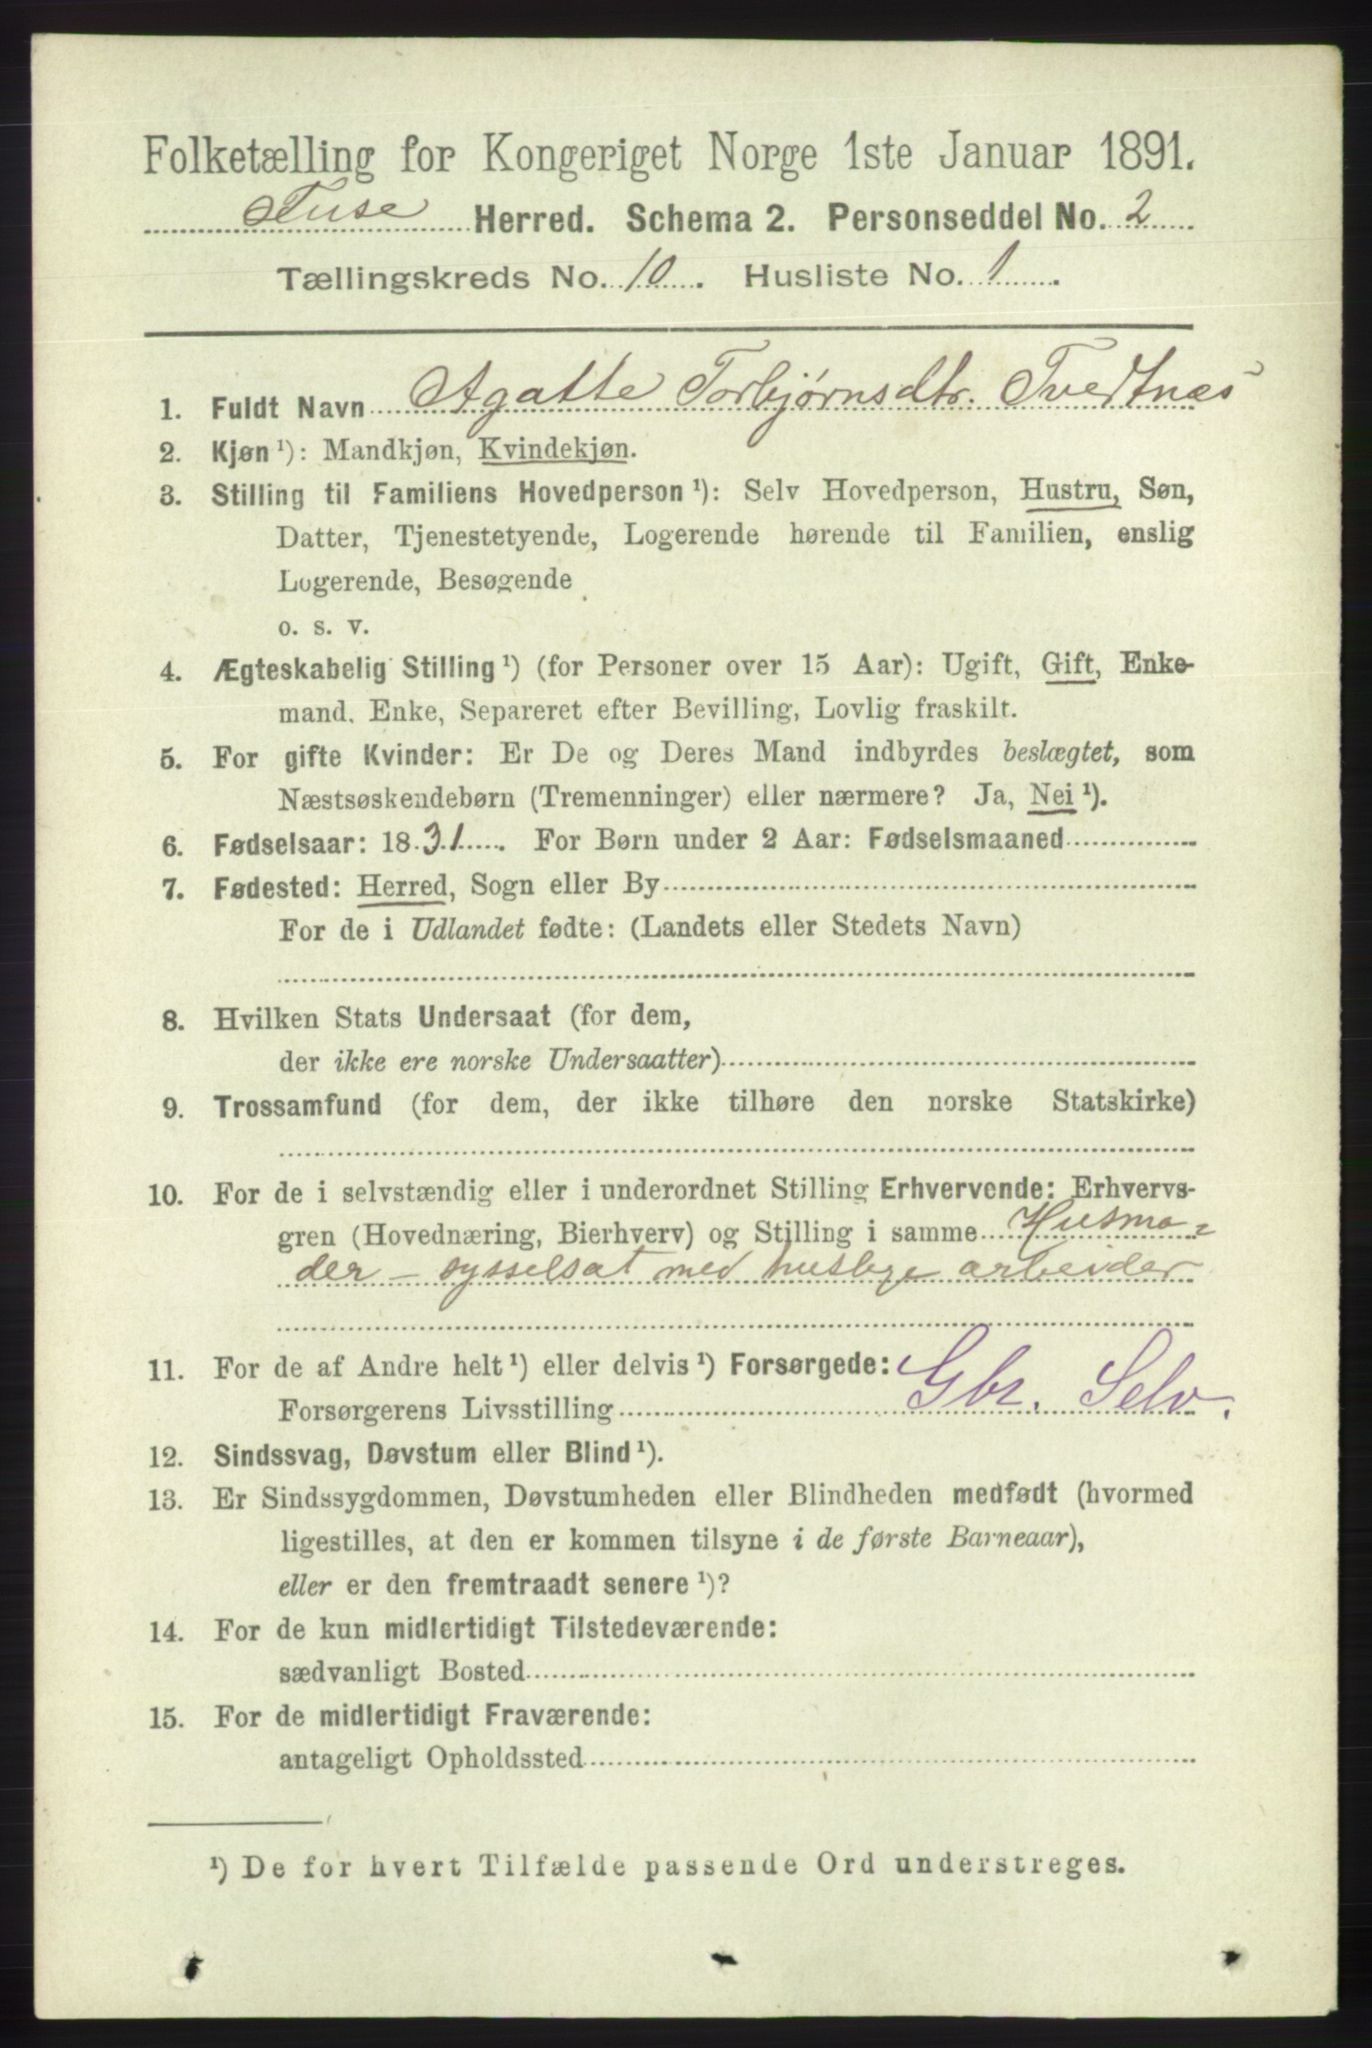 Folketælling for Kongeriget Norge 1ste Januar 1891.
Fuse Herred. Schema 2. Personseddel No. 2
Tællingskreds No. 10. Husliste No. 1.
1. Fuldt Navn Agatte Torbjørnsdtr. Tvedtnæs
2. Kjøn¹): Mandkjøn, Kvindekjøn.
3. Stilling til Familiens Hovedperson¹): Selv Hovedperson, Hustru, Søn,
Datter, Tjenestetyende, Logerende hørende til Familien, enslig
Logerende, Besøgende
o. s. v.
4. Ægteskabelig Stilling¹) (for Personer over 15 Aar): Ugift, Gift, Enke-
mand, Enke, Separeret efter Bevilling, Lovlig fraskilt.
5. For gifte Kvinder: Er De og Deres Mand indbyrdes beslægtet, som
Næstsøskendebørn (Tremenninger) eller nærmere? Ja, Nei¹).
6. Fødselsaar: 1831. For Børn under 2 Aar: Fødselsmaaned
7. Fødested: Herred, Sogn eller By
For de i Udlandet fødte: (Landets eller Stedets Navn)
8. Hvilken Stats Undersaat (for dem,
der ikke ere norske Undersaatter)
9. Trossamfund (for dem, der ikke tilhøre den norske Statskirke)
10. For de i selvstændig eller i underordnet Stilling Erhvervende: Erhvervs-
gren (Hovednæring, Bierhverv) og Stilling i samme Husmo=
der – sysselsat med huslige arbeider
11. For de af Andre helt¹) eller delvis¹) Forsørgede:
Forsørgerens Livsstilling Gbr. Selv.
12. Sindssvag, Døvstum eller Blind¹).
13. Er Sindssygdommen, Døvstumheden eller Blindheden medfødt (hvormed
ligestilles, at den er kommen tilsyne i de første Barneaar),
eller er den fremtraadt senere¹)?
14. For de kun midlertidigt Tilstedeværende:
sædvanligt Bosted
15. For de midlertidigt Fraværende:
antageligt Opholdssted
¹) De for hvert Tilfælde passende Ord understreges.